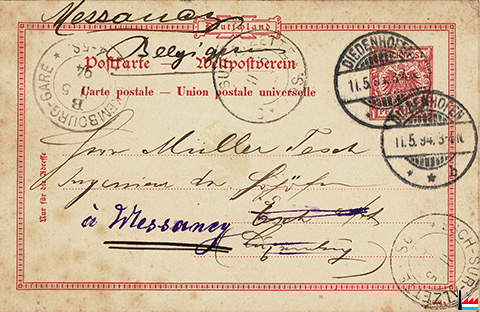 Messancy
Deutschland
Belgique
Postkarte — Weltpostverein
Carte postale — Union postale universelle
DIEDENHOFEN
11.5.94. 3-4N.
DIEDENHOFEN
11.5.94. 3-4N.
* * b
LUXEMBOURG-GARE
Nur für die Adresse
Herrn Müller Tesch
Ingenieur der
à Messancy
Esch
Luxemburg
ESCH-SUR-ALZETTE